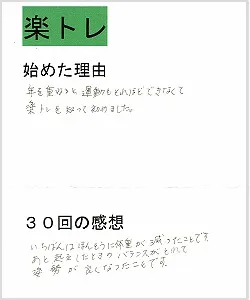 楽トレ
始めた理由
年を重ねると運動もそれほどできなくて
楽トレを知って初めました。
30回の感想
いちばんはほんとうに体重が減ったことです
あと起立したときのバランスがとれて
姿勢が良くなったことです。